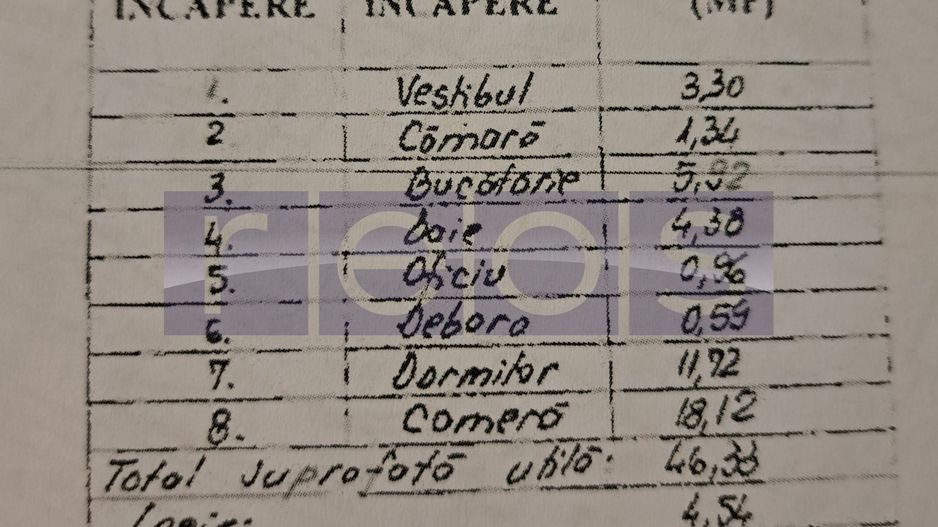 INCAPERE INCAPERE (MP)
1. Vestibul 3,30
2 Cămară 1,34
3. Bucătarie 5,92
4. baie 4,38
5. Oficiu 0,96
6. Debara 0,59
7. Dormitor 11,72
8. Cameră 18,12
Total suprafată utilă: 46,33
4,54
relos